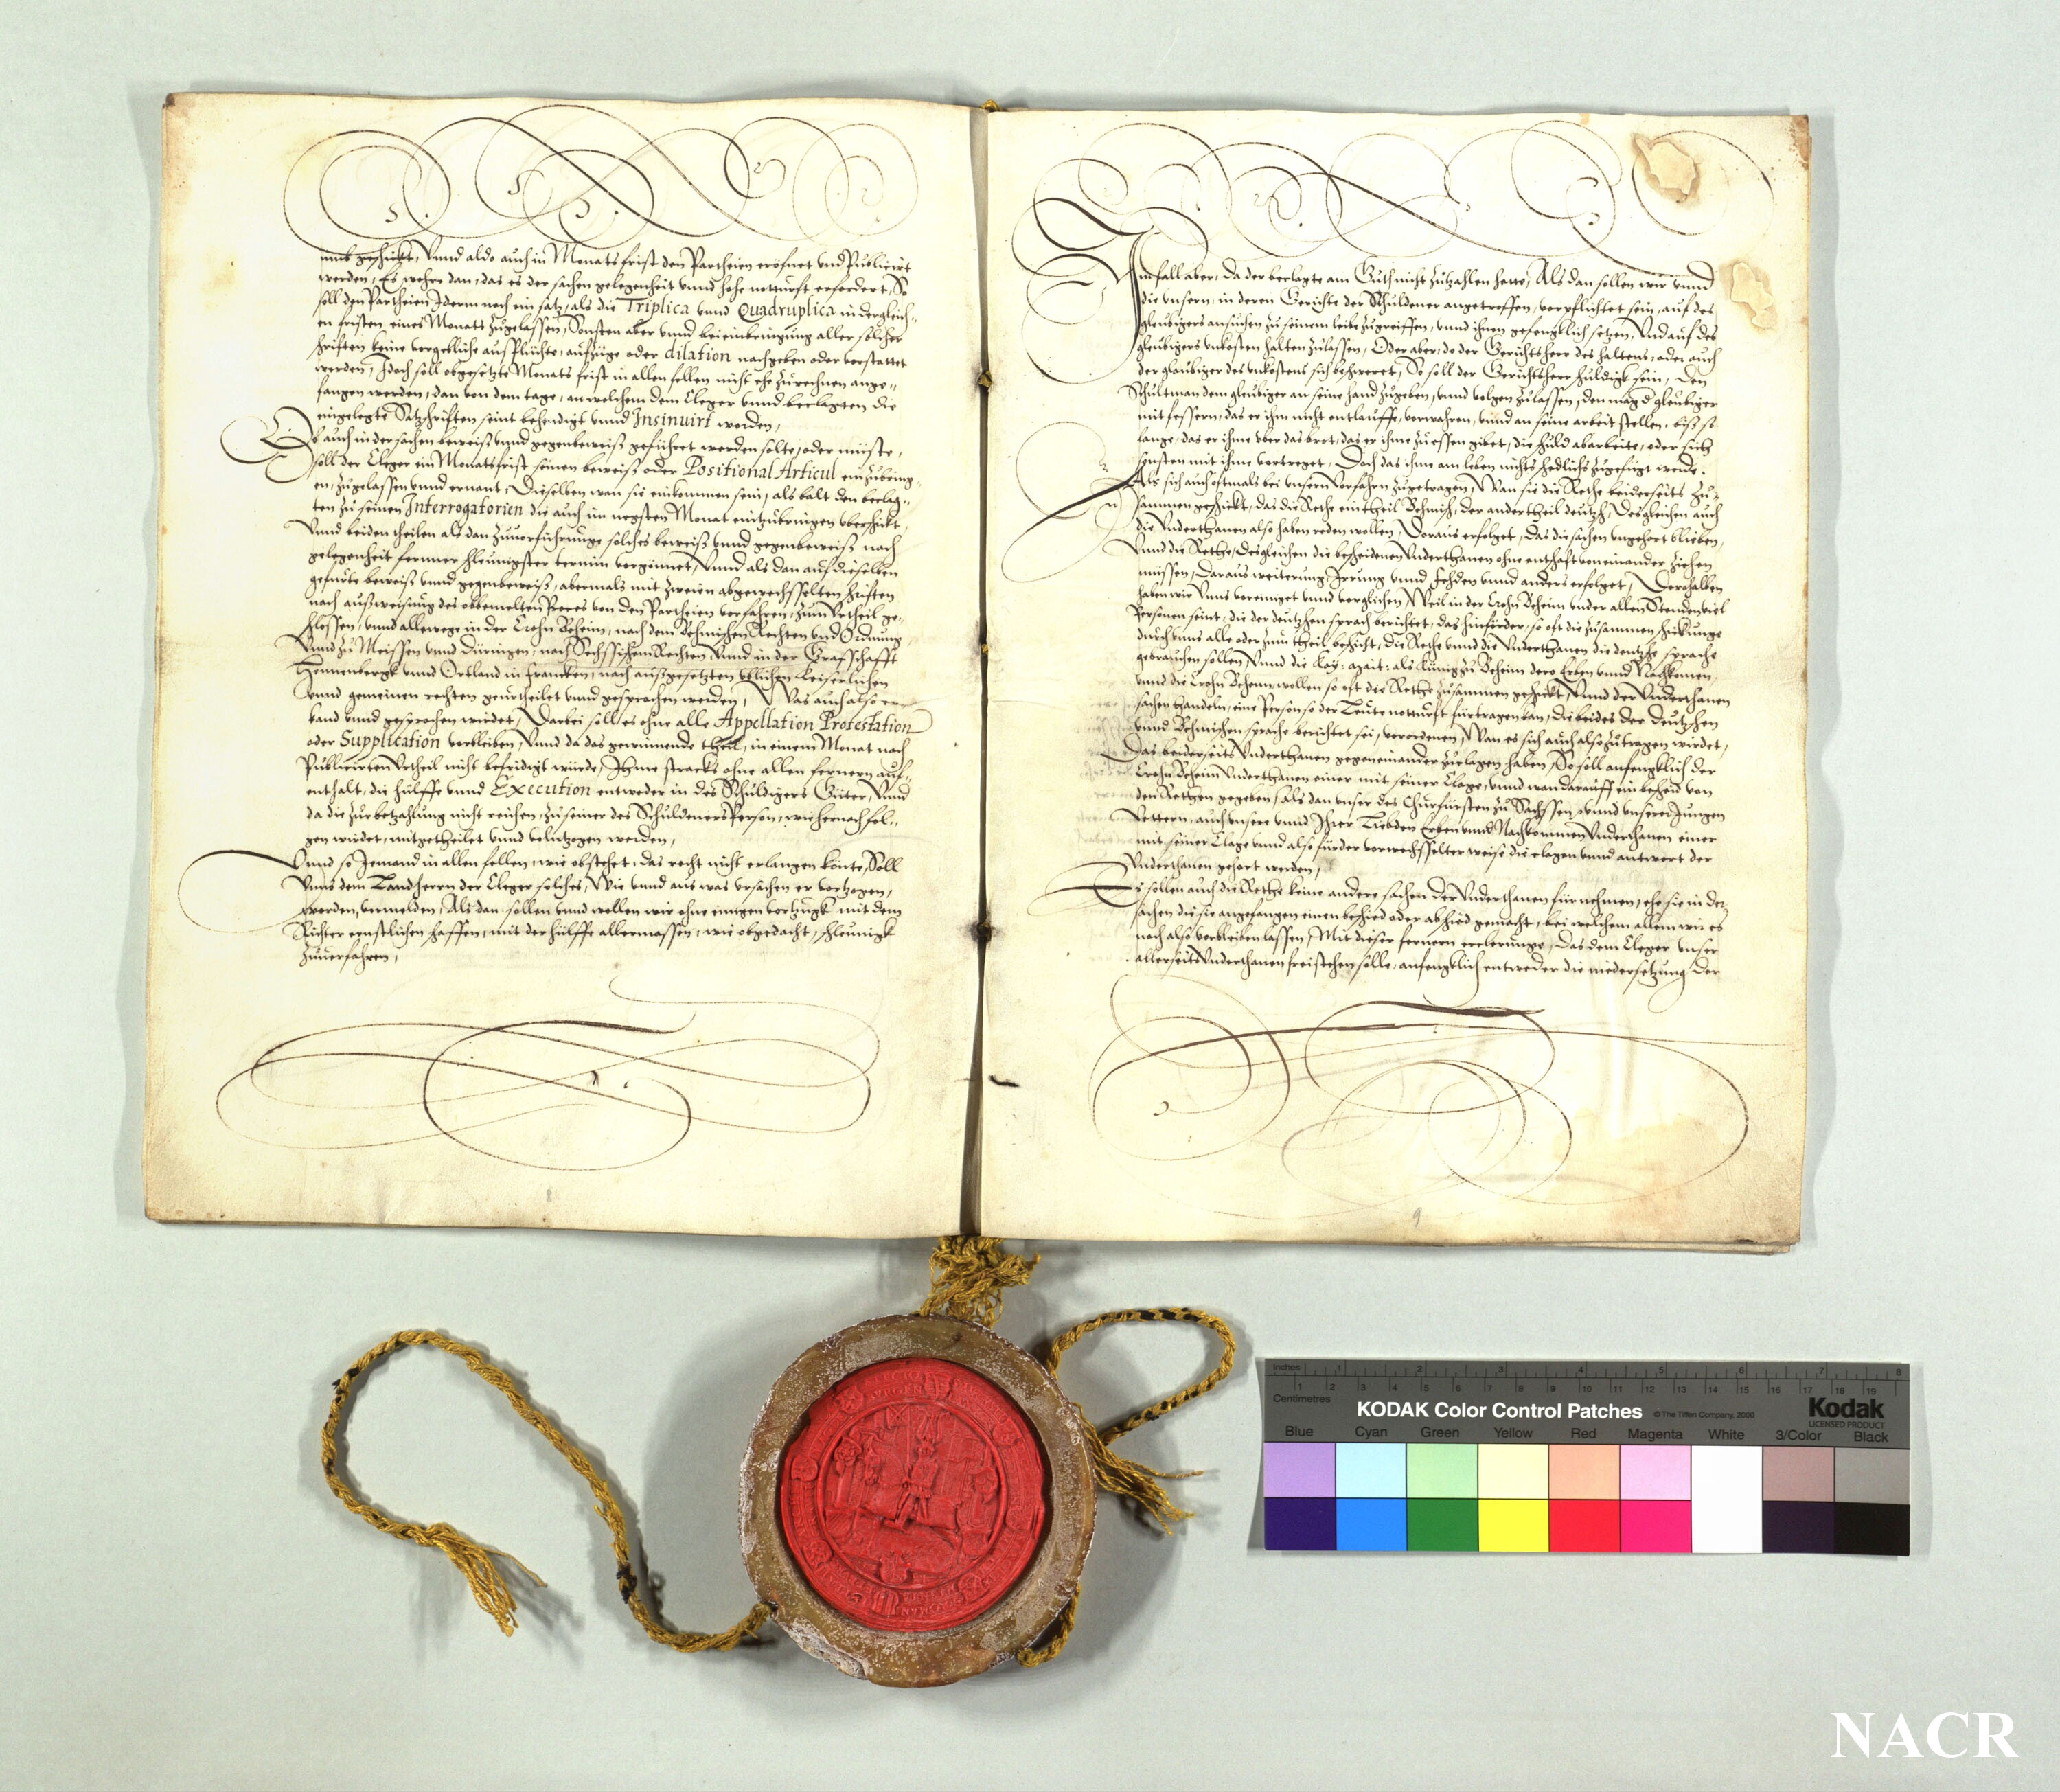 umb geschickt, Vnnd aldo auch in Monats frist den Partheien eröfnet vnd Publicirt
werden, Es wehre dan, das es der sachen gelegenheit vnnd hohe notturft erfordert, So
soll den Partheien Jderm noch ein satz, als die Triplica vnnd Quadruplica in dergleich-
en fristen eines Monats zugelassen, Sonsten aber vnnd bei einbringung aller solcher
schriften keine vorgebliche ausflüchte, aufzüge oder dilation nachgeben oder verstattet
werden, Jdoch soll obgesetzte Monats frist in allen fellen nicht ehe zurechnen ange-
fangen werden, dan von dem tage, an welchem dem Cleger vnnd beclagten die
eingelegte Satzschriften seint behendigt vnnd Insinuirt worden,
Ob auch in der sachen beweiß vnnd gegenbeweiß geführet werden solte, oder müste,
soll der Cleger ein Monatsfrist seinen beweiß oder Positional Articul einzubring-
en, zugelassen vnnd ernant, Dieselben wan sie einkommen sein, als balt den beclag-
ten zu seinen Interrogatorien die auch im negsten Monat einzubringen vberschickt,
Vnnd beiden theilen als dan zuuorführunge solches beweiß vnnd gegenbeweiß nach
gelegenheit fernner schleunigster termin vergönnet, Vnnd als dan auf dieselben
gefürte beweiß vnnd gegenbeweiß, abermals mit zweien abgewechsselten schriften
nach außweisung des obbemelten Proces von den Partheien verfahren, zum Vrtheil ge-
schlossen, vnnd allewege in der Crohn Beheim, nach dem Behmischen Rechten vnd Ordnung
Vnnd zu Meissen vnnd Düringen, nach Sechssischem Rechten, Vnnd in der Graffschafft
Hennenbergk vnnd Ortland in Francken, nach außgesetzten vblichen Keiserlichen
vnnd gemeinen rechten geurtheilet vnnd gesprochen werden, Was auch also er-
kand vnnd gesprochen wirdet, Darbei soll es ohne alle Appellation Protestation
oder Supplication verbleiben, Vnnd da das gewinnende theil, in einem Monat nach
Publicirten Vrtheil nicht befridigt würde, Ihme stracks ohne allen fernern auf-
enthalt, die hülffe vnnd Execution entweder in des Schuldigers Güter, Vnnd
da die zur betzahlung nicht reichen, zu seiner des Schuldeners Person, wie hernach fol-
gen wirdet, mitgetheilet vnnd volnzogen werden,
Vnnd so Jemand in allen fellen, wie obstehet, das recht nicht erlangen könte, Soll
Vnns dem Landherrn der Cleger solches, Wie vnnd aus was vrsachen er vortzogen,
werden, vermelden, Als dan sollen vnnd wollen wir ohne einigen vortzugk mit dem
Richter ernstlichen schaffen, mit der hülffe allermassen, wie obgedacht, schleunigk
zuuerfahren,
Im fall aber, da der beclagte am Guth nicht zubzahlen hette, Als dan sollen wir vnnd
die vnsern, in deren Gerichte der Schuldener angetroffen, verpflichtet sein, auf des
gleubigers ansuchen zu seinem leibe zugreiffen, vnnd ihnen gefengklich setzen, Vnd auf des
gleubigers vnkosten halten zulassen, Oder aber, do der Gerichtsherr des haltens, oder auch
der gleubiger des vnkostens sich beschweret, So soll der Gerichtsherr schuldigk sein, Den
Schultman dem gleubiger an seine hand zugeben, vnnd volgen zulassen, den mag d gleubiger
mit fessern, das er ihm nicht entlauffe, verwahren, vnnd an seine arbeit stellen, biß so
lange, das er ihme vber das brot, das er ihme zu essen gibet, die schuld abarbeite, oder sich
sonsten mit ihme vertreget, Doch das ihm am leben nichts schedlichs zugefügt werde.
Als sich auch oftmals bei vnsern Vorfahrn zugetragen, Wan sie die Rethe beiderseits zu-
sammen geschickt, das die Rethe ein theil Behmisch, der ander theil deutzsch, Desgleichen auch
die Vnderthanen also haben reden wollen, Doraus erfolget, Das die sachen vngehort blieben,
Vnnd die Rethe, desgleichen die bescheidenen Vnderthanen ohne entschaft von einander ziehen
müssen, Daraus weiterung, Irrung vnnd Fehden vnnd anders erfolget, Derohalben
haben wir Vnns voreiniget vnnd verglichen, Weil in der Crohn Beheim vnder allen Stenden viel
Personen seint, die der deutzschen sprach berichtet, das hinfürder, so oft die zusammen schickunge
durch vnns alle oder zum theil beschicht, die Rethe vnnd die Vnderthanen die deutzsche sprache
gebrauchen sollen, Vnnd die Kay: Mait: als König zu Beheim dero Erben vnnd Nachkomen
vnnd die Crohn Beheim, wollen so oft die Rethe zusammen geschickt, Vnnd der Vnderthanen
sachen handeln, eine Person so der Leute notturft fürtragen kan, die beides der deutzschen
vnnd Behmischen sprache berichtet sei, verordenen, Wan es sich auch also zutragen wirdet,
Das beiderseits Vnderthanen gegen einander zuclagen haben, So soll anfengklich der
Crohn Beheim Vnderthanen einer mit seiner Clage, vnnd wan darauff ein bescheid von
den Rethen gegeben, als dan vnser des Churfürsten zu Sachssen, vnnd vnserer Jungen
Vettern, auch vnsere vnnd Ihrer Liebden Erben vnnd Nachkommen Vnderthanen einer
mit seiner Clage vnnd also fürder vorwechsselter weise die clagen vnnd antwort der
Vnderthanen gehort werden,
Es sollen auch die Rethe keine andere sachen der Vnderthanen fürnehmen, ehe sie in der
sachen die sie angefangen einen bescheid oder abschied gemacht, bei welchem allem wir es
noch also vorbleiben lassen, Mit dieser fernern erclerunge, Das dem Cleger vnser
allerseits Vnderthanen frei stehen solle, anfengklich entweder die niedersetzung der
8
9
Inches 1 2 3 4 5 6 7 8
Centimetres 1 2 3 4 5 6 7 8 9 10 11 12 13 14 15 16 17 18 19
KODAK Color Control Patches © The Tiffen Company, 2000 Kodak
LICENSED PRODUCT
Blue Cyan Green Yellow Red Magenta White 3/Color Black
NACR